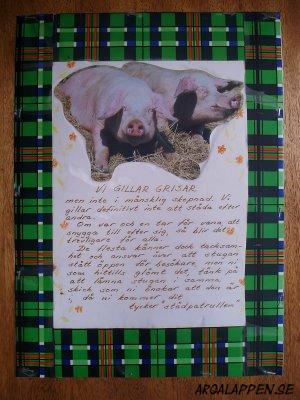 VI GILLAR GRISAR
men inte i mänsklig skepnad. Vi
gillar definitivt inte att städa efter
andra.
Om var och en tar för vana att
snygga till efter sig, så blir det
trevligare för alla.
De flesta känner dock tacksam-
het och ansvar över att stugan
stått öppen för besökare men ni
som hittills glömt det, tänk på
att lämna stugan i samma
skick som ni önskar att den är
i, då ni kommer dit
tycker "städpatrullen"
ARGALAPPEN.SE